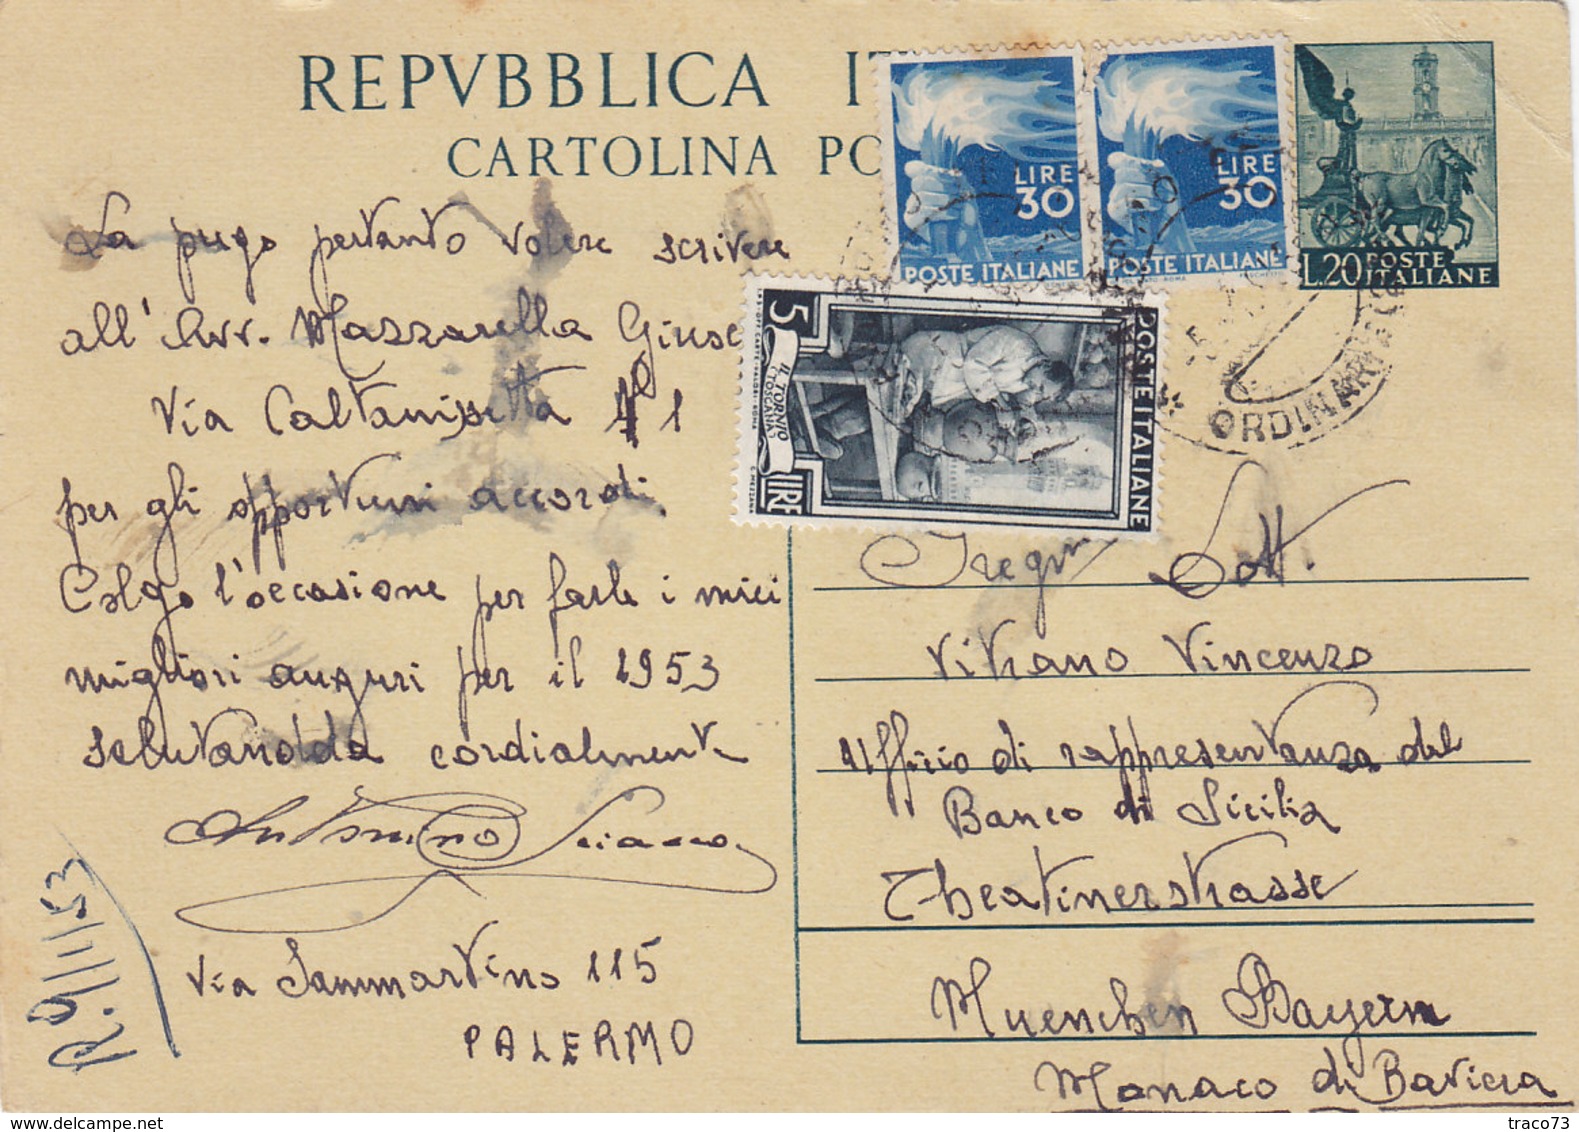 REPVBBLICA IT
CARTOLINA PO
LIRE
30
POSTE ITALIANE
LIRE
30
POSTE ITALIANE
L.20 POSTE
ITALIANE
5 LIRE
IL TORNIO
(TOSCANA)
POSTE ITALIANE
ORDINARIE
La prego pertanto volere scrivere
all'Avv. Mazzarella Giuse
Via Caltanissetta N° 1
per gli opportuni accordi.
Colgo l'occasione per farle i miei
migliori auguri per il 1953
salutandola cordialmente
Antonino Sciacco
Via Sammartino 115
PALERMO
R. 9/1/53
Gregm Dott.
Vitrano Vincenzo
Ufficio di rappresentanza del
Banco di Sicilia
Theatinerstrasse
Muenchen Bayern
Monaco di Baviera
traco73